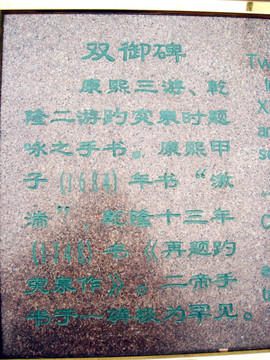 双御碑
康熙三游、乾
隆二游趵突泉时题
咏之手书。康熙甲
子(1684)年书“激
湍”，乾隆十三年
(1748)书《再题趵
突泉作》。二帝手
书于一碑极为罕见。
Tw